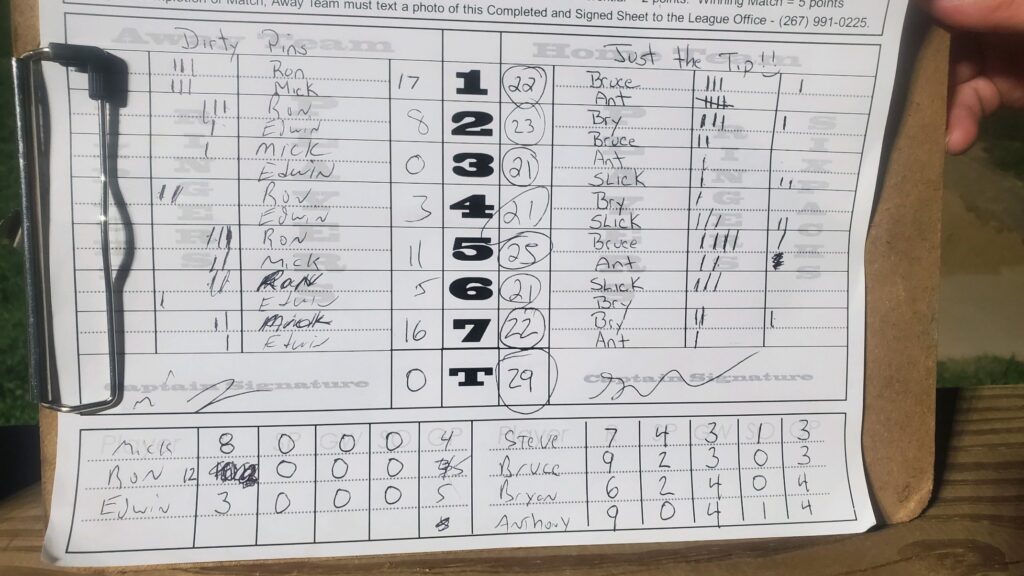 2 points. Winning Match = 5 points
Completion of Match, Away Team must text a photo of this Completed and Signed Sheet to the League Office - (267) 991-0225.
Away Team Home Team
Dirty Pins Just the Tip!!
Ron Bruce
Mick 17 1 22 Ant
Ron Bry
Edwin 8 2 23 Bruce
Mick Ant
Edwin 0 3 21 Slick
Ron Bry
Edwin 3 4 21 Slick
Ron Bruce
Mick 11 5 25 Ant
Ron Slick
Edwin 5 6 21 Bry
Mick Bry
Edwin 16 7 22 Ant
Captain Signature 0 T 29 Captain Signature
Mick 8 0 0 0 4 Steve 7 4 3 1 3
Ron 12 0 0 0 5 Bruce 9 2 3 0 3
Edwin 3 0 0 0 5 Bryan 6 2 4 0 4
Anthony 9 0 4 1 4